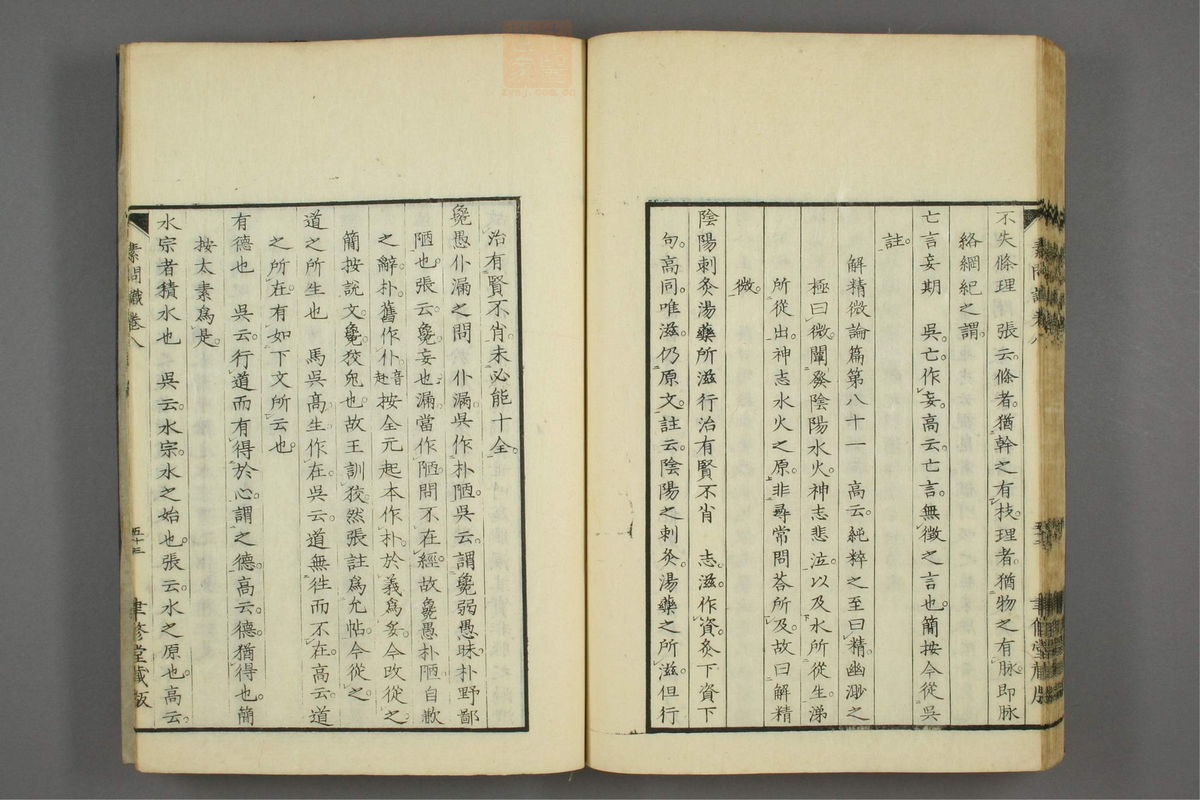 不失條理　張云條者猶幹之有枝理者猶物之有脉即脉
絡綱紀之謂
亡言妄期　吳亡作妄高云亡言無徵之言也簡按今從吳
註
解精微論篇第八十一　高云純粹之至曰精幽渺之
極曰微闡發陰陽水火神志悲泣以及水所從生涕
所從出神志水火之原非尋常問答所及故曰解精
微
陰陽刺灸湯藥所滋行治有賢不肖　志滋作資灸下資下
句高同唯滋仍原文註云陰陽之刺灸湯藥之所滋但行
治有賢不肖未必能十全
毚愚仆漏之問　仆漏吳作朴陋吳云謂毚弱愚昧朴野鄙
陋也張云毚妄也漏當作陋問不在經故毚愚朴陋自歉
之辭朴舊作仆音赴按全元起本作朴於義為妥今改從之
簡按說文毚狡兔也故王訓狡然張註為允帖今從之
道之所生也　馬吳高生作在吳云道無往而不在高云道
之所在有如下文所云也
有德也　吳云行道而有得於心謂之德高云德猶得也簡
按太素為是
水宗者積水也　吳云水宗水之始也張云水之原也高云
素問識卷八
五十三
聿修堂藏版
zysj.com.cn